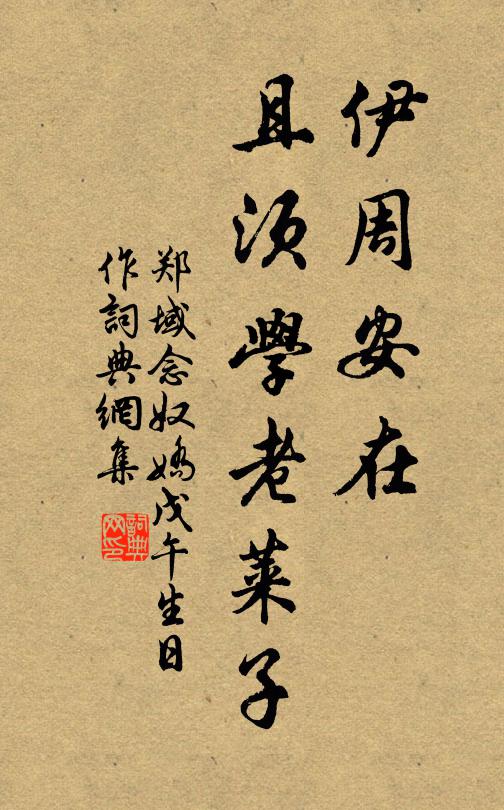 伊周安在
且须學老萊子
郑域念奴嬌戊午生日
作詞典網集
詞典
网印